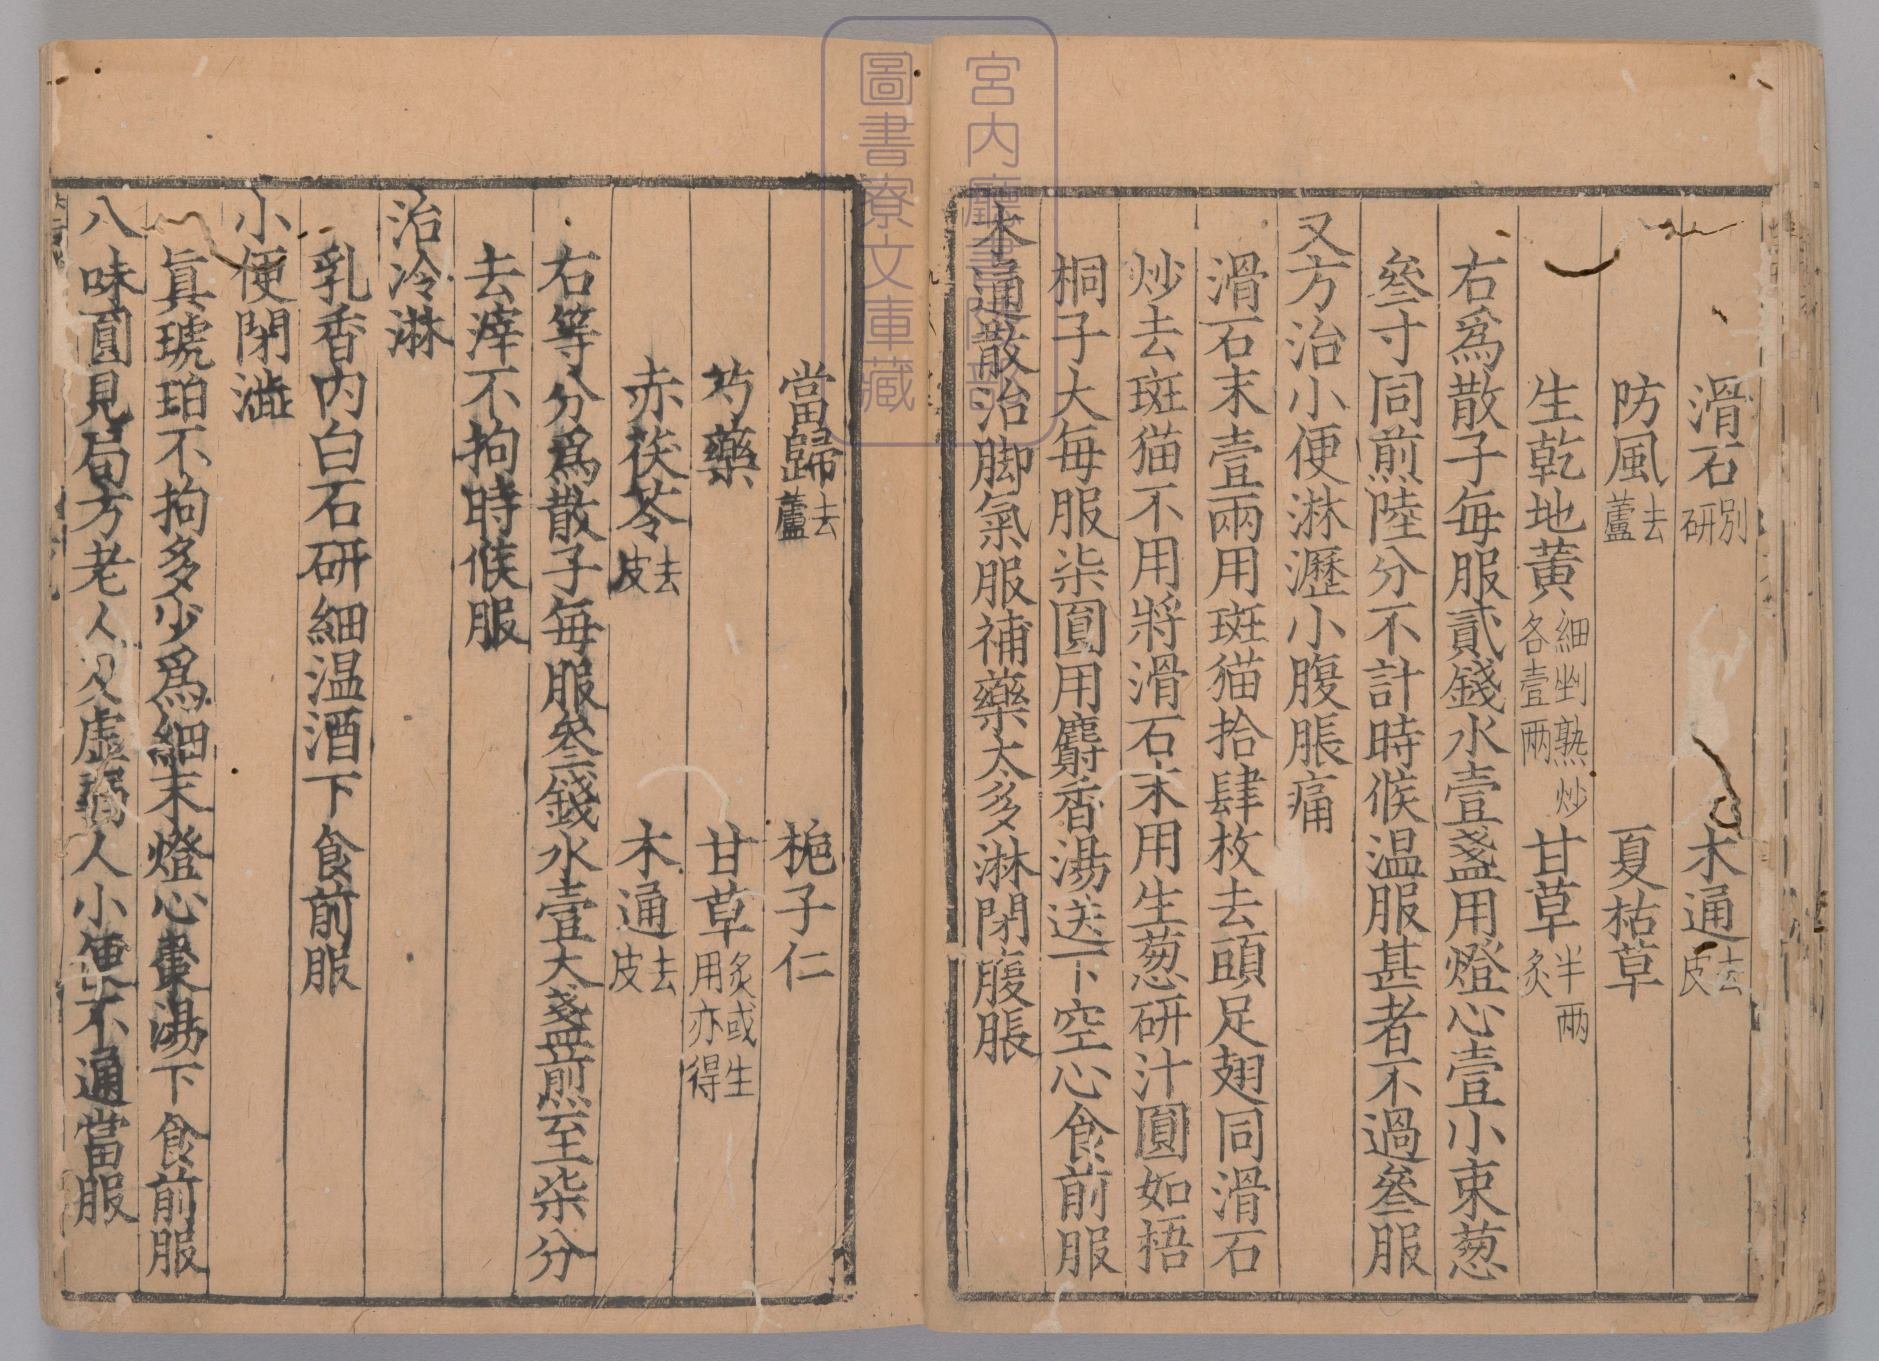 滑石別研　木通去皮
防風去蘆　夏枯草
生乾地黃細剉熟炒各壹兩　甘草半兩炙
右爲散子每服貳錢水壹盞用燈心壹小束葱
叄寸同煎陸分不計時候温服甚者不過叄服
又方治小便淋瀝小腹脹痛
滑石末壹兩用斑猫拾肆枚去頭足翅同滑石
炒去斑猫不用將滑石末用生葱研汁圓如梧
桐子大每服柒圓用麝香湯送下空心食前服
木通散治脚氣服補藥太多淋閉腹脹
當歸去蘆　梔子仁
芍藥　甘草炙或生用亦得
赤茯苓去皮　木通去皮
右等分爲散子每服叄錢水壹大盞煎至柒分
去滓不拘時候服
治冷淋
乳香內白石研細温酒下食前服
小便閉澁
眞琥珀不拘多少爲細末燈心棗湯下食前服
八味圓見局方老人及虛弱人小便不通當服
宮内廳書陵部
圖書寮文庫藏